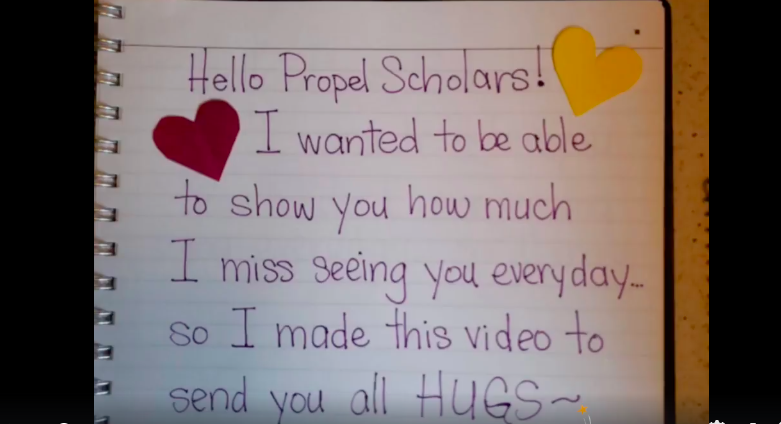 Hello Propel Scholars!
I wanted to be able
to show you how much
I miss seeing you everyday...
so I made this video to
send you all HUGS~